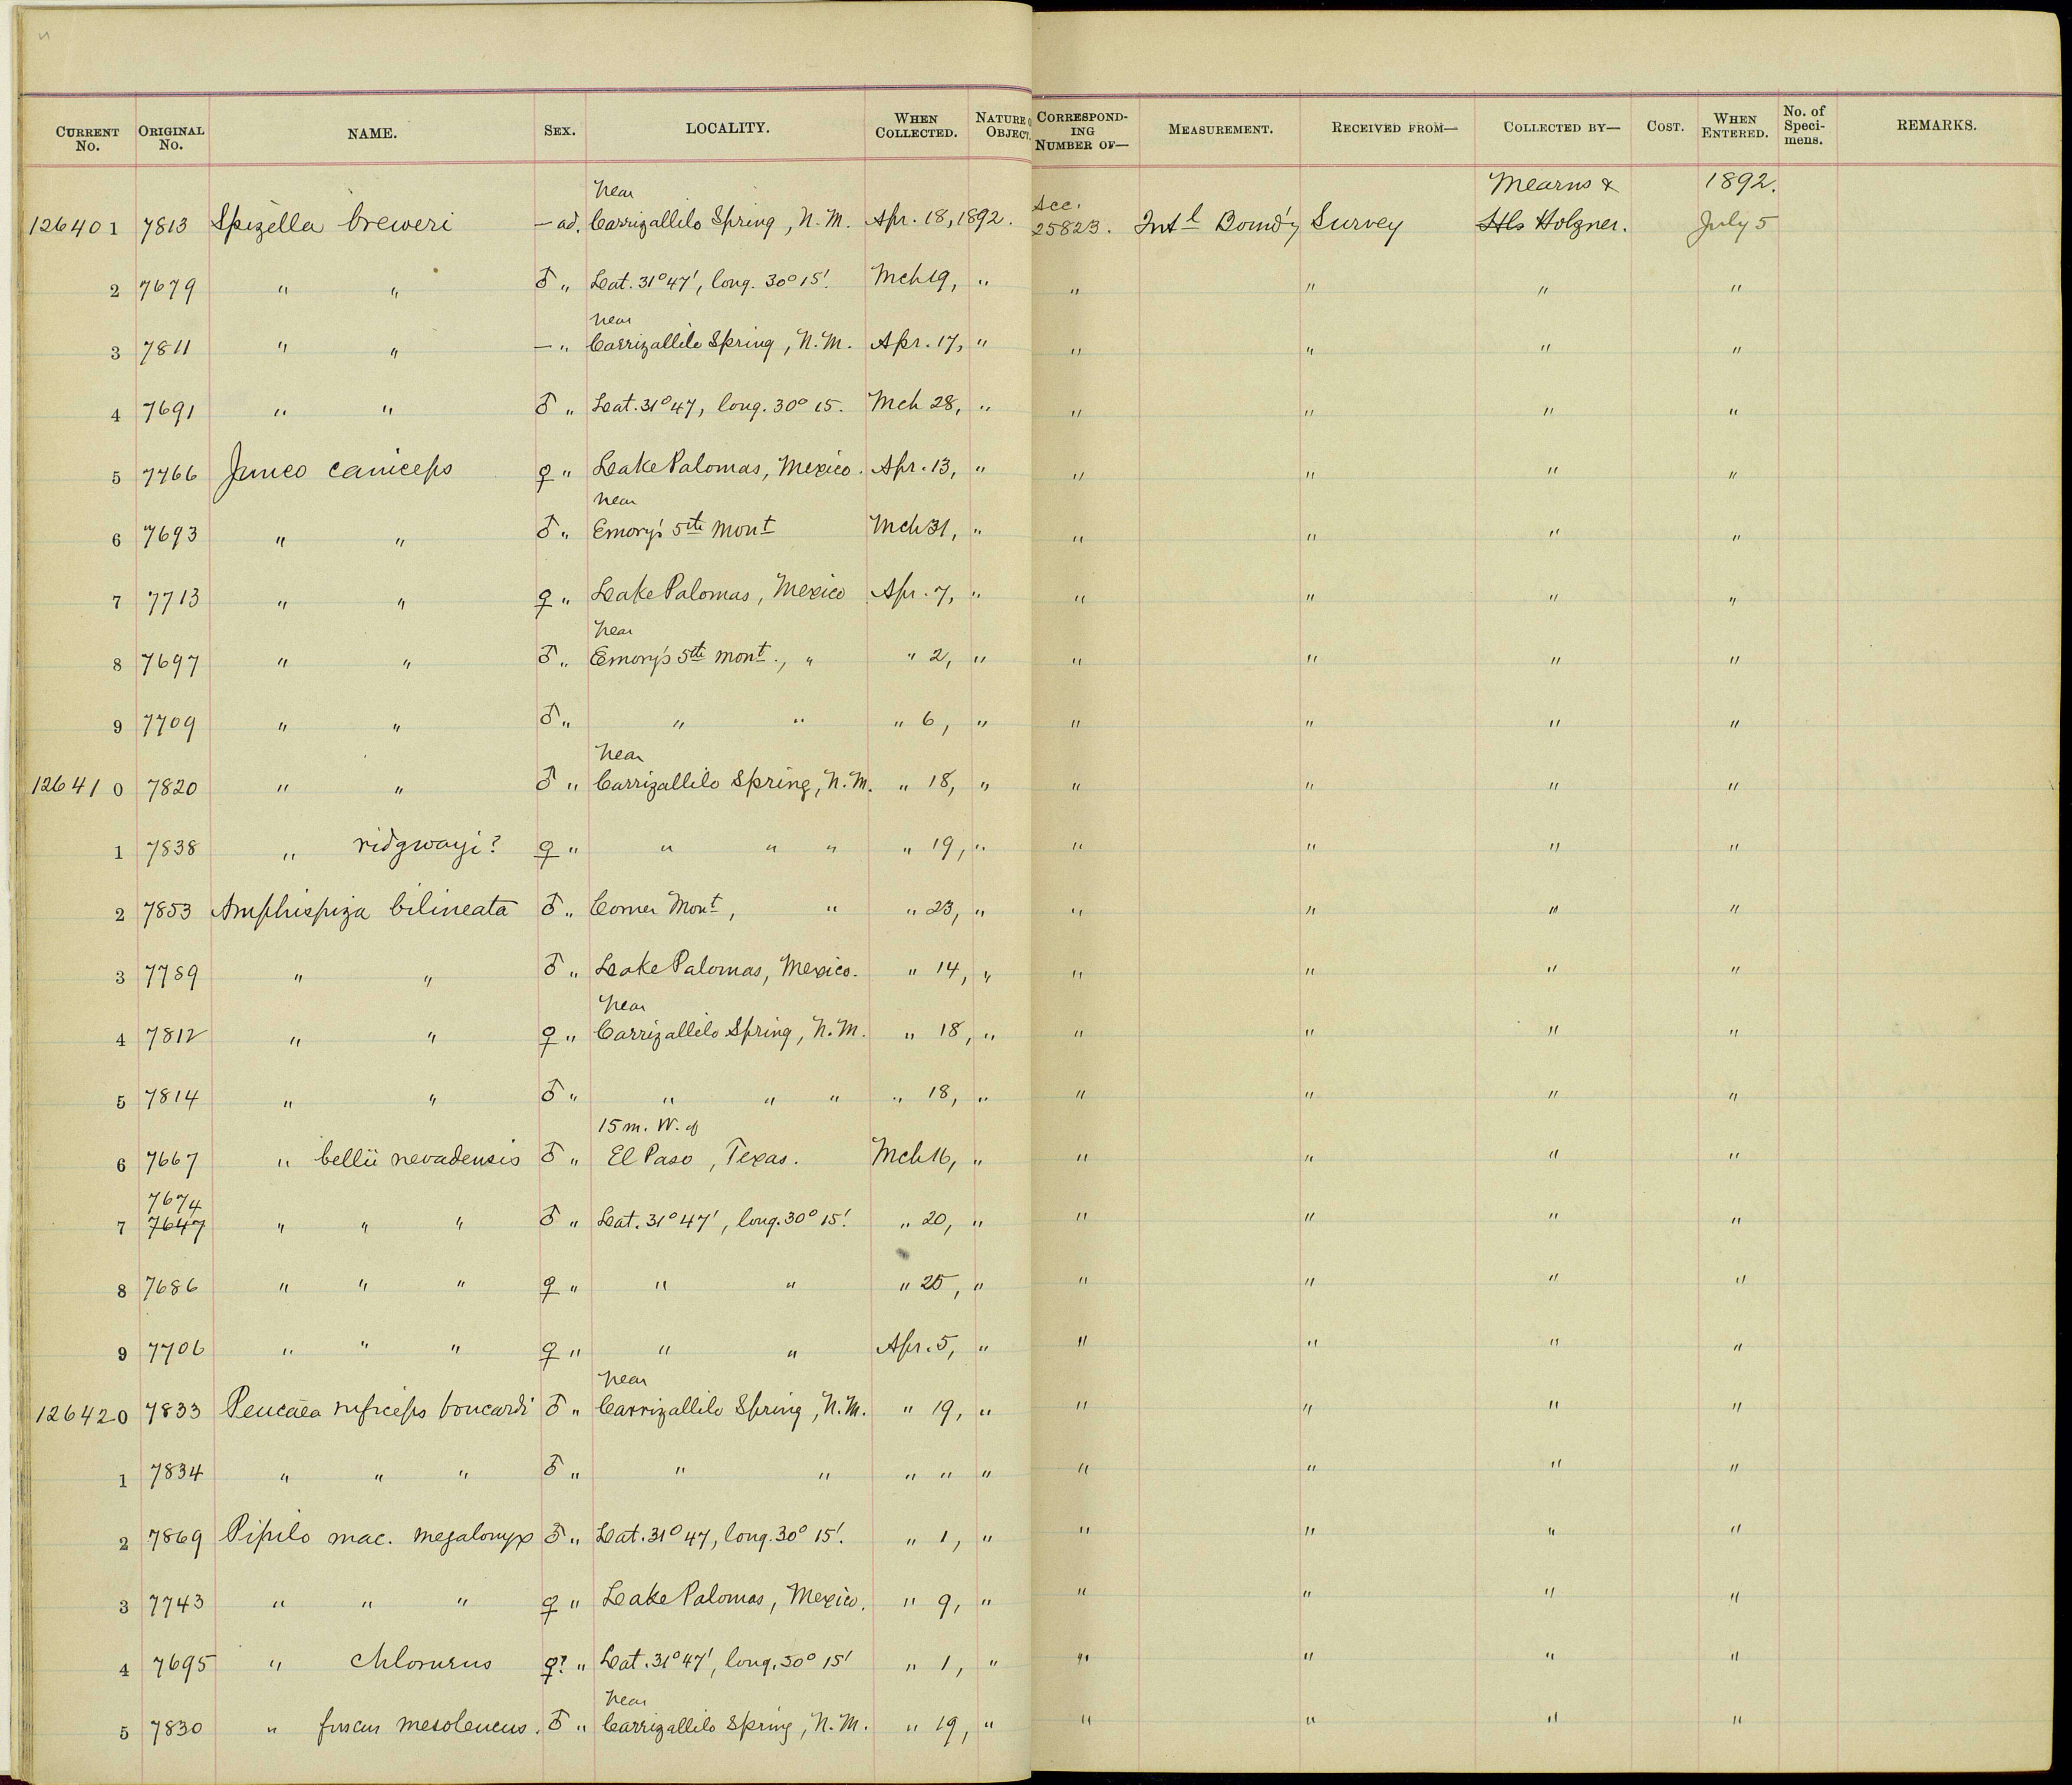 CURRENT No. ORIGINAL No. NAME. SEX. LOCALITY. WHEN COLLECTED. NATURE OBJECT. CORRESPONDING NUMBER OF— MEASUREMENT. RECEIVED FROM— COLLECTED BY— COST. WHEN ENTERED. No. of Specimens. REMARKS.
Near Mearns & 1892.
126401 7813 Spizella breweri — ad. Carrizallilo Spring, N.M. Apr. 18, 1892. Acc. 25823. Int l Bound'y Survey Hls Holzner. July 5
2 7679 " " ♂ " Lat. 31° 47', long. 30° 15'. Mch 19, " " " " "
near
3 7811 " " — " Carrizallilo Spring, N.M. Apr. 17, " " " " "
4 7691 " " ♂ " Lat. 31° 47, long. 30° 15. Mch 28, " " " " "
5 7766 Junco caniceps ♀ " Lake Palomas, Mexico. Apr. 13, " " " " "
near
6 7693 " " ♂ " Emory's 5th Mont Mch 31, " " " " "
7 7713 " " ♀ " Lake Palomas, Mexico Apr. 7, " " " " "
near
8 7697 " " ♂ " Emory's 5th Mont., " " 2, " " " " "
9 7709 " " ♂ " " " " 6, " " " " "
Near
126410 7820 " " ♂ " Carrizallilo Spring, N.M. " 18, " " " " "
1 7838 " ridgwayi? ♀ " " " " " 19, " " " " "
2 7853 Amphispiza bilineata ♂ " Corner Mont, " " 23, " " " " "
3 7789 " " ♂ " Lake Palomas, Mexico. " 14, " " " " "
Near
4 7812 " " ♀ " Carrizallilo Spring, N.M. " 18, " " " " "
5 7814 " " ♂ " " " " " 18, " " " " "
15 m. W. of
6 7667 " bellii nevadensis ♂ " El Paso, Texas. Mch 16, " " " " "
7674
7 7647 " " " ♂ " Lat. 31° 47', long. 30° 15'. " 20, " " " " "
8 7686 " " " ♀ " " " " 25, " " " " "
9 7706 " " " ♀ " " " Apr. 5, " " " " "
Near
126420 7833 Peucaea ruficeps boucardi ♂ " Carrizallilo Spring, N.M. " 19, " " " " "
1 7834 " " " ♂ " " " " " " " " " "
2 7869 Pipilo mac. megalonyx ♂ " Lat. 31° 47, long. 30° 15'. " 1, " " " " "
3 7743 " " " ♀ " Lake Palomas, Mexico. " 9, " " " " "
4 7695 " chlorurus ♀? " Lat. 31° 47', long. 30° 15' " 1, " " " " "
Near
5 7830 " fuscus mesoleucus. ♂ " Carrizallilo Spring, N.M. " 19, " " " " "